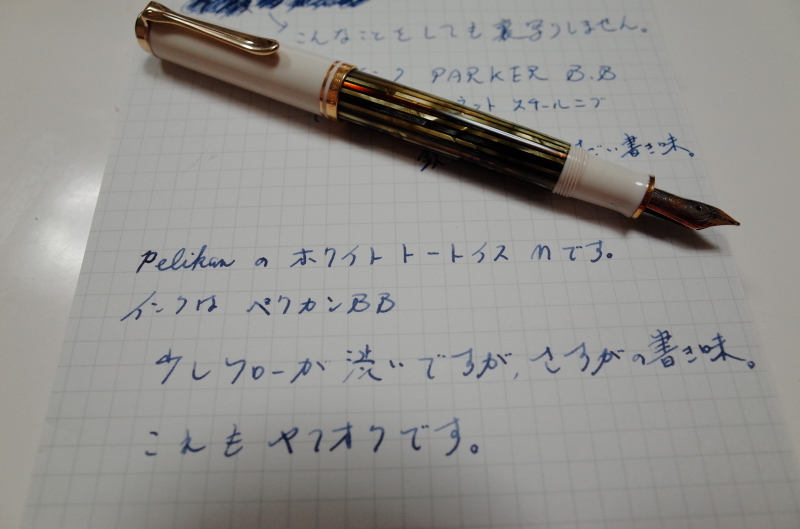 こんなことをしても裏写りしません。
PARKER B.B
ネット スチールニブ
すごい書き味。
Pelikan の ホワイト トートイス Mです。
インクは ペリカン BB
少しフローが 渋いですが、さすがの書き味。
これも ヤフオクです。